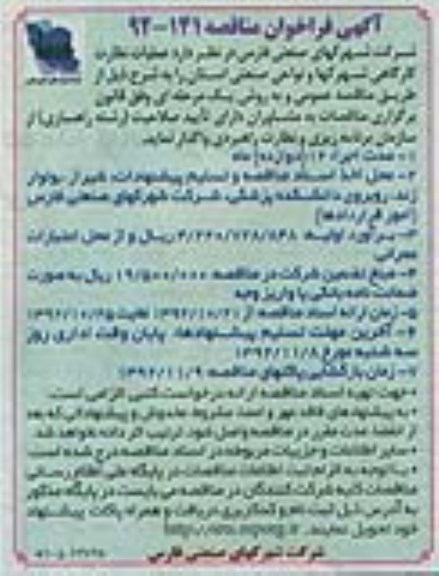 آگهی فراخوان مناقصه ۱۳۱-۹۲
شرکت شهرکهای صنعتی فارس در نظر دارد عملیات نظارت
کارگاهی شهرکها و نواحی صنعتی استان را به شرح ذیل از
طریق مناقصه عمومی و به روش یک مرحله ای وفق قانون
برگزاری مناقصات به مشاوران دارای تأیید صلاحیت (رشته راهسازی) از
سازمان برنامه ریزی و نظارت راهبردی واگذار نماید.
۱- مدت اجرا: ۱۲ (دوازده) ماه
۲- محل اخذ اسناد مناقصه و تسلیم پیشنهادات: شیراز، بولوار
زند، روبروی دانشکده پزشکی، شرکت شهرکهای صنعتی فارس
(امور قراردادها)
۳- برآورد اولیه: ریال و از محل اعتبارات
عمرانی
۴- مبلغ تضمین شرکت در مناقصه: ۱۹/۵۰۰/۰۰۰ ریال به صورت
ضمانت نامه بانکی یا واریز وجه
۵- زمان ارائه اسناد مناقصه: از ۱۳۹۲/۱۰/۲۱ لغایت ۱۳۹۲/۱۰/۲۵
۶- آخرین مهلت تسلیم پیشنهادها: پایان وقت اداری روز
سه شنبه مورخ ۱۳۹۲/۱۱/۸
۷- زمان بازگشایی پاکتهای مناقصه: ۱۳۹۲/۱۱/۹
• جهت تهیه اسناد مناقصه ارائه درخواست کتبی الزامی است.
• به پیشنهادهای فاقد مهر و امضا، مشروط، مخدوش و پیشنهاداتی که بعد
از انقضا مدت مقرر در مناقصه واصل شود، ترتیب اثر داده نخواهد شد.
• سایر اطلاعات و جزییات مربوطه در اسناد مناقصه درج شده است.
• با توجه به الزام ثبت اطلاعات مناقصات در پایگاه ملی اطلاع رسانی
مناقصات کلیه شرکت کنندگان در مناقصه می بایست در پایگاه مذکور
به آدرس ذیل ثبت نام و کد کاربری دریافت و همراه پاکات پیشنهاد
خود تحویل نمایند.
شرکت شهرکهای صنعتی فارس